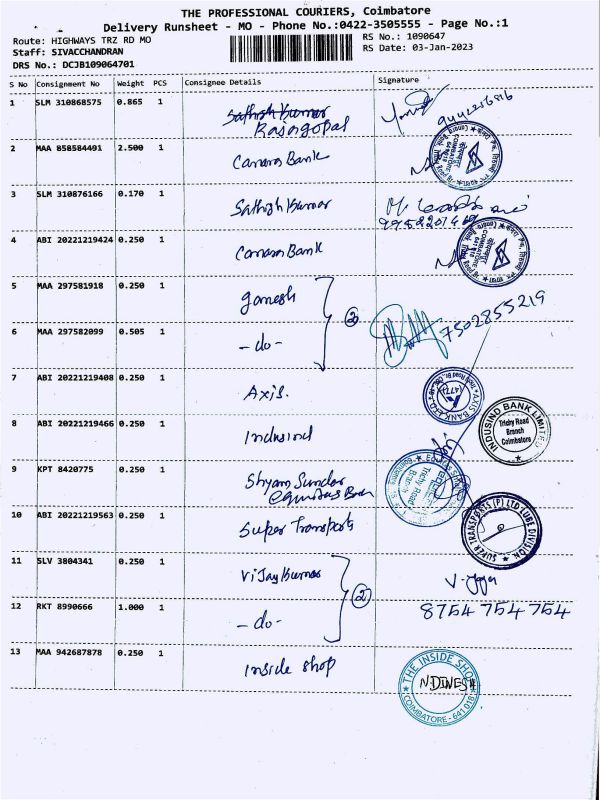 THE PROFESSIONAL COURIERS, Coimbatore
Delivery Runsheet - MO - Phone No.:0422-3505555 - Page No.:1
Route: HIGHWAYS TRZ RD MO
RS No.: 1090647
Staff: SIVACCHANDRAN
RS Date: 03-Jan-2023
DRS No.: DCJB109064701
S No Consignment No Weight PCS Consignee Details Signature
1 SLM 310868575 0.865 1 Sathish Kumar
Rasagopal
2 MAA 858584491 2.500 1 Canara Bank
3 SLM 310876166 0.170 1 Sathish Kumar
4 ABI 20221219424 0.250 1 Canara Bank
5 MAA 297581918 0.250 1 ganesh
② 7502855219
6 MAA 297582099 0.505 1 -do-
7 ABI 20221219408 0.250 1 Axis.
AXIS BANK LTD
8 ABI 20221219466 0.250 1 Indusind
INDUSIND BANK LIMITED
Trichy Road
Branch
Coimbatore
9 KPT 8420775 0.250 1 Shyam Sundar
equitas Bank
Trichy Road
Branch
10 ABI 20221219563 0.250 1 Super Transports
SUPER TRANSPORTS (P) LTD LUBE DIVISION
11 SLV 3804341 0.250 1 Vijay Kumar
②
12 RKT 8990666 1.000 1 -do- 8754 754 754
13 MAA 942687878 0.250 1 Inside shop
THE INSIDE SHOP
N DINESH
COIMBATORE - 641 018